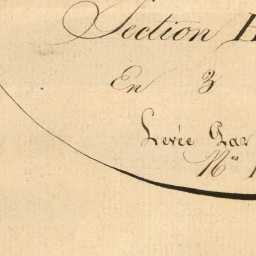 Section
En 3
Levée Par